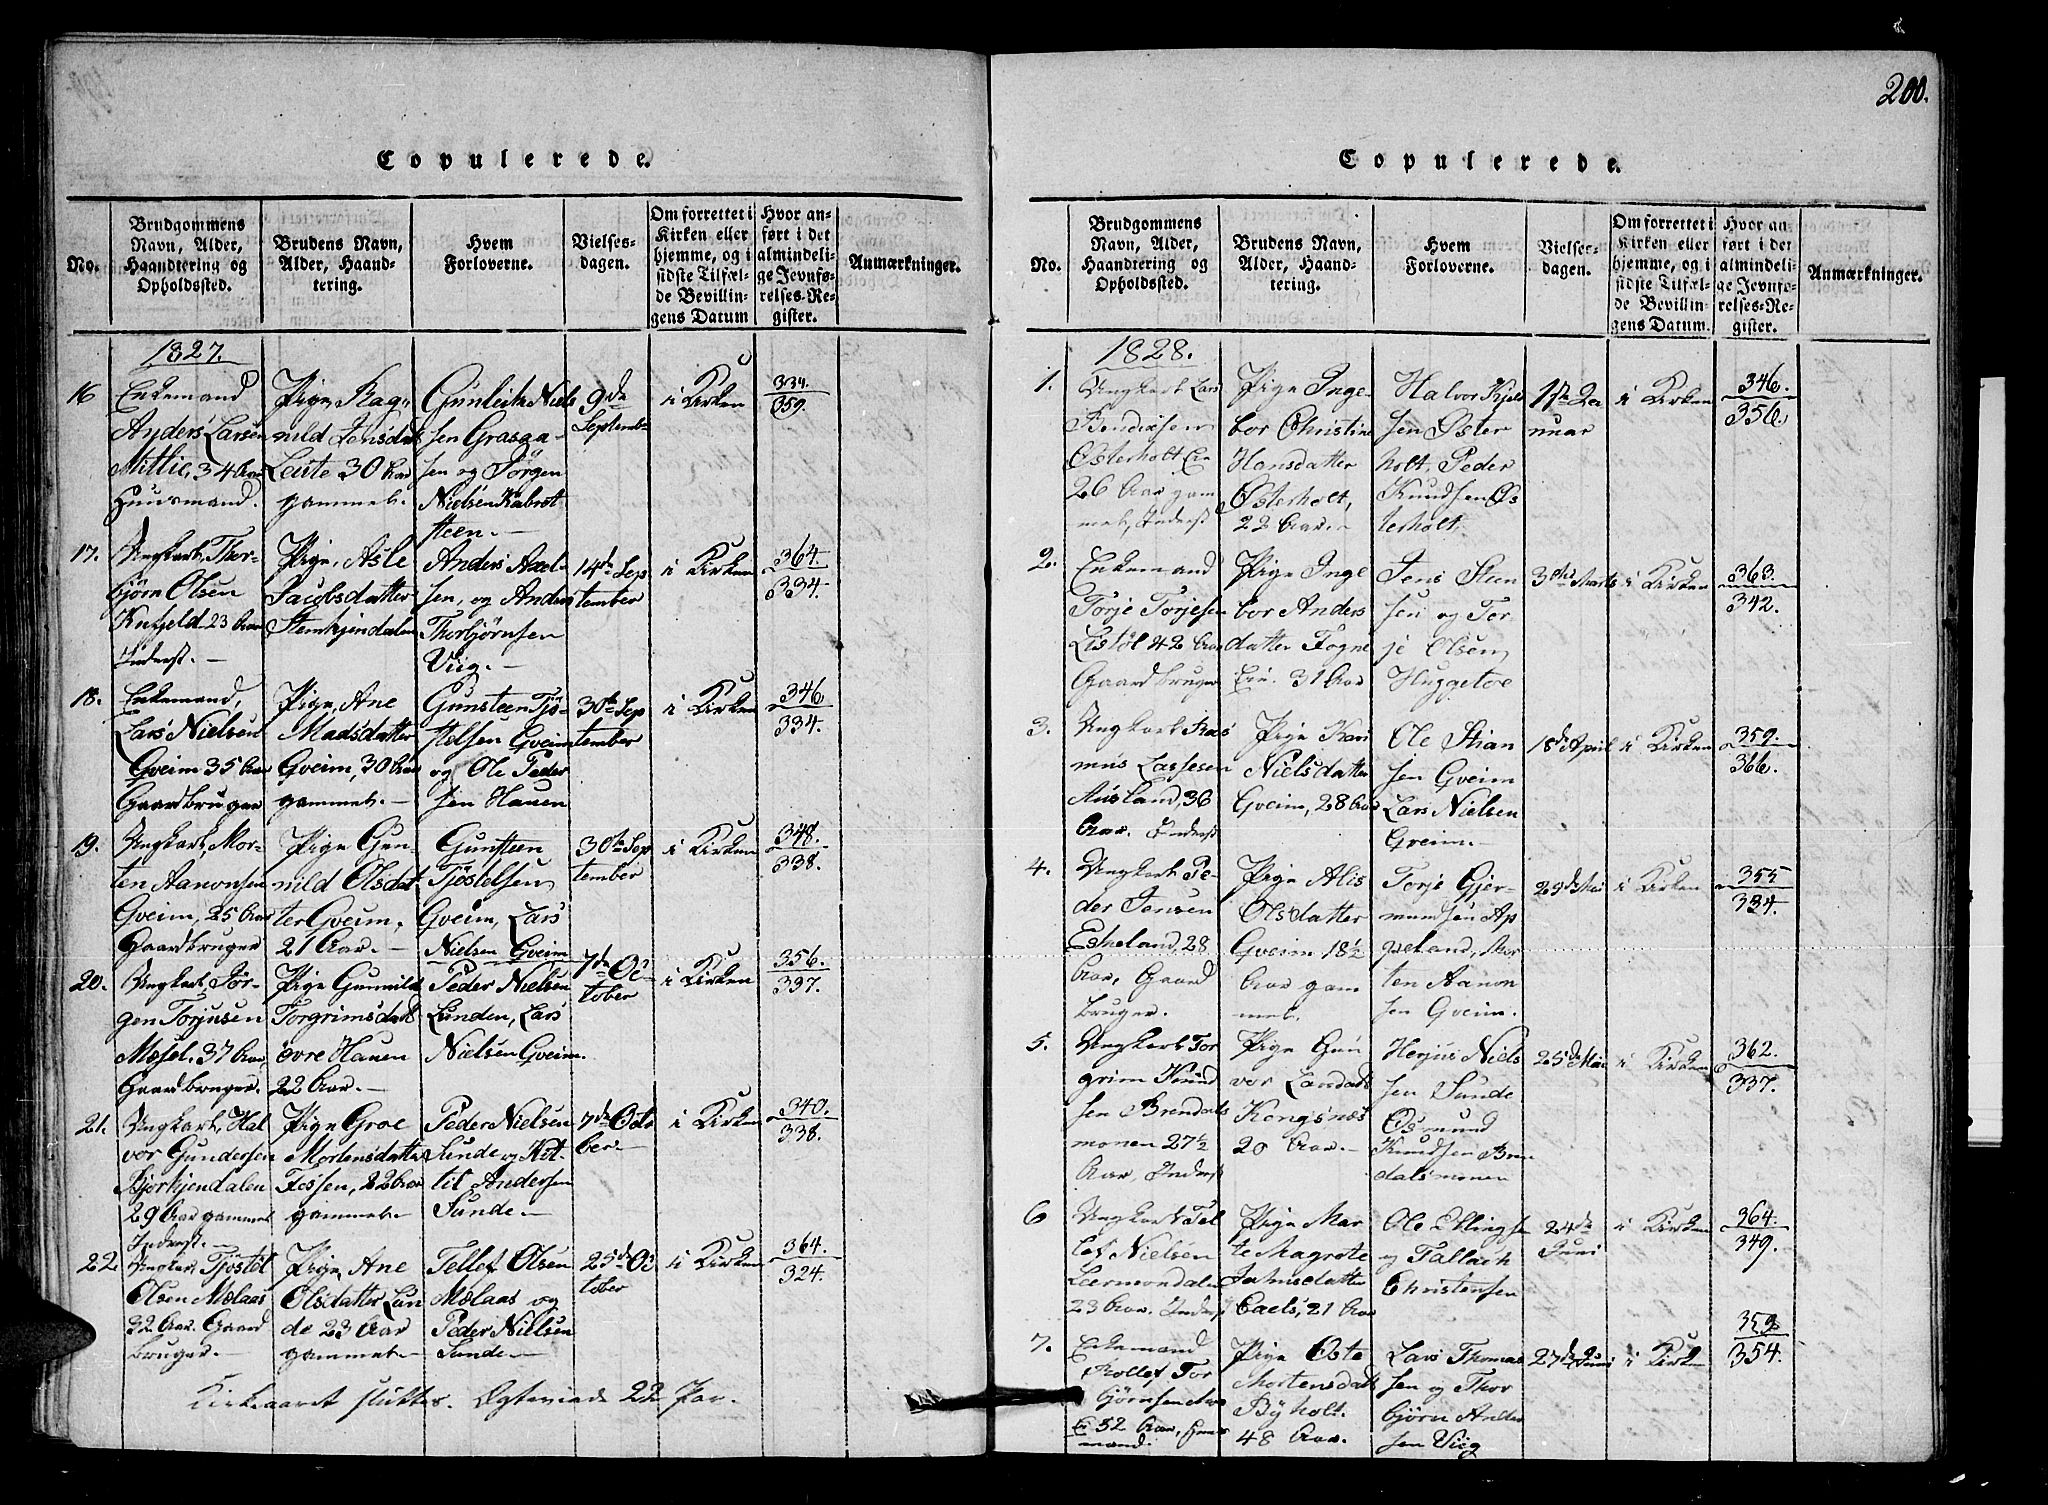 200.
Copulerede.
No.
Brudgommens
Navn, Alder,
Haandtering og
Opholdssted.
Brudens Navn,
Alder, Haand-
tering.
Hvem
Forloverne.
Vielses-
dagen.
Om forrettet i
Kirken eller
hjemme, og i
sidste Tilfæl-
de Bevillin-
gens Datum
Hvor an-
ført i det
almindeli-
ge Jevnfø-
relses-Re-
gister.
Anmærkninger.
1827.
16
Enkemand
Anders Larsen
Mittie, 34 Aar
Huusmand.
Pige, Rag-
nild Jensdat
Leiste 30 Aar
gammel.
Gunleik Niels
sen Grasaa-
sen og Jørgen
Nielsen Kabrot
steen.
9de
Septemb
i Kirken
334.
359.
17.
Ungkarl, Thor-
bjørn Olsen
Kufjeld 23 Aar
Inderst.
Pige, Asle
Jacobsdatter
Stemkjendalen
Anders Axel-
sen, og Anders
Thorbjørnsen
Viig.
14de Sep
tember
i Kirken
364.
334.
18.
Enkemand,
Lars Nielsen
Gveim 35 Aar
Gaardbruger
Pige, Ane
Madsdatter
Gveim, 30 Aar
gammel.
Gunsteen Tjø-
stelsen Gveim
og Ole Peder
sen Hauen
30te Sep
tember
i Kirken
346
334.
19.
Ungkarl, Mor-
ten Aanonsen
Gveim, 25 Aar
Gaardbruger
Pige Gun-
nild Olsdat-
ter Gveim,
21 Aar.
Gunsteen
Tjøstelsen
Gveim, Lars
Nielsen Gveim
30te Sep
tember
i Kirken
348.
338.
20.
Ungkarl, Jør-
gen Torjusen
Mosel, 37 Aar,
Gaardbruger.
Pige Gunnild
Torgrimsdatt
øvre Hauen
22 Aar.
Peder Nielsen
Lunden, Lars
Nielsen Gveim.
7de Oc-
tober
i Kirken
356.
337.
21.
Ungkarl, Hal
vor Gundersen
Bjorkjendalen
29 Aar gammel
Inderst.
Pige Groe
Mortensdatter
Fossen, 22 Aar
gammel.
Peder Nielsen
Sunde og Kit-
til Andersen
Sunde.
7de Octo
ber
i Kirken
340.
338.
22
Ungkar, Tjostel
Olsen Mælaas
32 Aar. Gaard
bruger.
Pige, Ane
Olsdatter Lun
de 23 Aar
gammel.
Tellef Olsen
Mælaas og
Peder Nielsen
Sunde.
25de Oc
tober
i Kirken
364.
324.
Kirkeaaret sluttes. Ægteviede 22 Par.
Copulerede.
No.
Brudgommens
Navn, Alder,
Haandtering og
Opholdssted.
Brudens Navn,
Alder, Haand-
tering.
Hvem
Forloverne.
Vielses-
dagen.
Om forrettet i
Kirken eller
hjemme, og i
sidste Tilfæl-
de Bevillin-
gens Datum.
Hvor an
ført i det
almindeli-
ge Jevnfø-
relses-Re-
gister.
Anmærkninger.
1828.
1.
Ungkarl Lars
Bendixsen
Østerholt Eie
26 Aar gam
mel, Inderst
Pige Inge
bor Christine
Hansdatter
Østerholt,
22 Aar.
Halvor Kjeld
sen Øster
holt, Peder
Knudsen Øs
terholt.
17de Ja
nuar
i Kirken
346.
356.
2.
Enkemand
Torje Torjesen
Listøl 42 Aar
Gaardbruger
Pige Inge
bor Anders
datter Fogne
Eie. 31 Aar
Jens Steen
sen og Tor
je Olsen
Huggetoe
3die Marts
i Kirken
363.
342.
3.
Ungkarl Ras
mus Lassesen
Ausland, 36
Aar. Inderst
Pige Kari
Nielsdatter
Gveim, 28 Aar
Ole Stian
sen Gveim
Lars Nielsen
Gveim.
18de April
i Kirken
359.
366.
4.
Ungkarl Pe-
der Jensen
Eskeland, 28
Aar, Gaard
bruger.
Pige Alis
Olsdatter
Gveim 18½
Aar gam
mel.
Torje Gjer-
mundsen Ap
peland, Mor
ten Aanon
sen Gveim.
29de Mai
i Kirken
355
334.
5.
Ungkarl Tor
grim Knud
sen Brendals
monen 27½
Aar Inderst
Pige Gun
vor Larsdatt
Kongsnæs
20 Aar.
Herjus Niels
sen Sunde
Osmund
Knudsen Bren
dalsmonen
25de Mai
i Kirken
362.
337.
6
Ungkarl Tel
lef Nielsen
Leermondalen
23 Aar. Inderst
Pige Mar
te Magrete
Jahnsdatter
Caels, 21 Aar
Ole Ellingsen
og Tallach
Christensen
24de
Juni
i Kirken
364.
349.
7.
Enkemand
Rollef Tor
bjørnsen
52 Aar, Huus
mand.
Pige Oste
Mortensdatt
Byholt.
48 Aar.
Lars Thomas
sen og Thor
bjørn Ander
sen Viig
27de Juni
i Kirken
359
354.